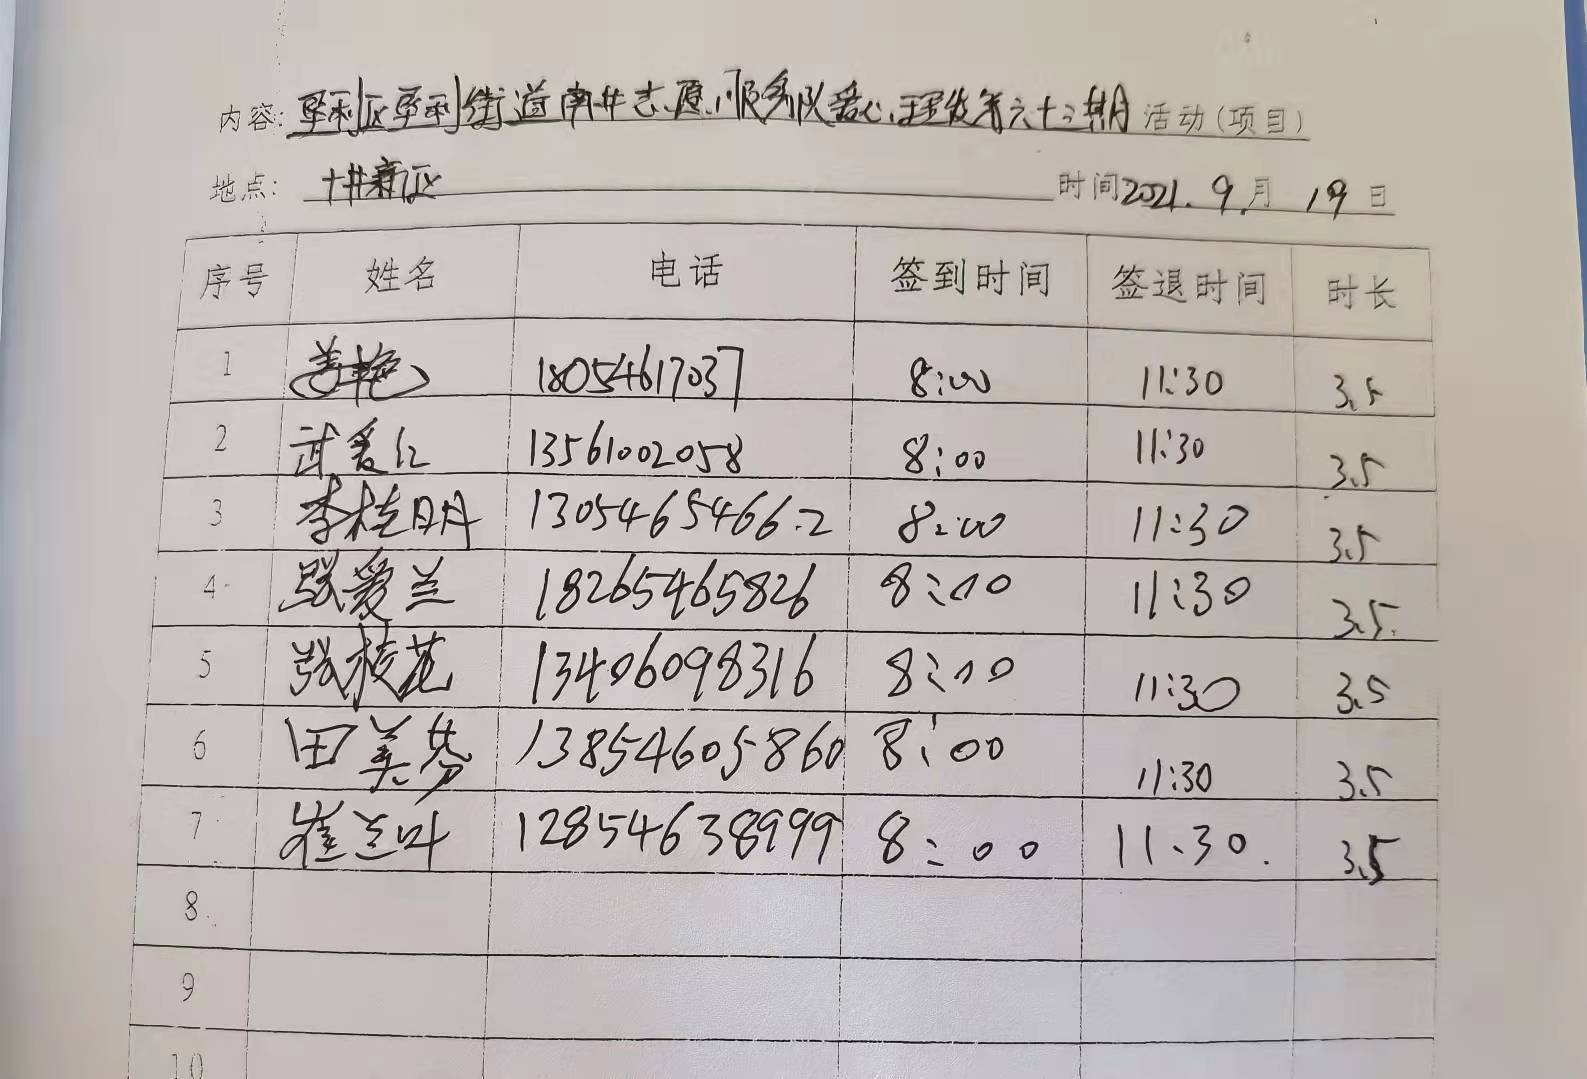 内容: 垦利区垦利街道南井志愿服务队爱心理发第六十二期 活动(项目)
地点: 十井新区 时间 2021. 9 月 19 日
序号 姓名 电话 签到时间 签退时间 时长
1 姜艳 18054617037 8:00 11:30 3.5
2 武爱红 13561002058 8:00 11:30 3.5
3 李桂明 13054654662 8:00 11:30 3.5
4 张爱兰 18265465826 8:00 11:30 3.5
5 张桂花 13406098316 8:00 11:30 3.5
6 田美芬 13854605860 8:00 11:30 3.5
7 崔兰叶 12854638999 8:00 11:30. 3.5
8
9
10